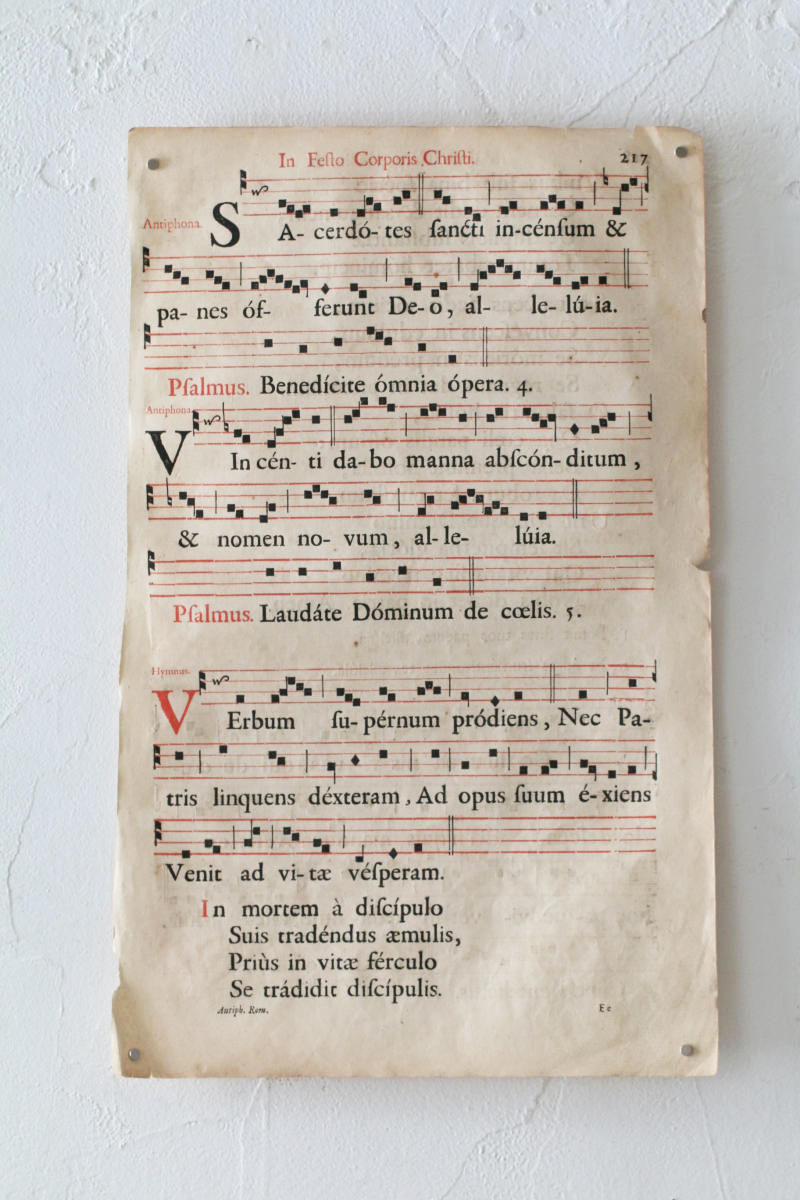 In Feſto Corporis Chriſti. 217
Antiphona.
SA- cerdó- tes ſancti in-cénſum &
pa- nes óf- ferunt De-o, al- le- lú-ia.
Pſalmus. Benedícite ómnia ópera. 4.
Antiphona.
VIncén- ti da-bo manna abſcón-ditum,
& nomen no- vum, al-le- lúia.
Pſalmus. Laudáte Dóminum de cœlis. 5.
Hymnus.
VErbum ſu-pérnum pródiens, Nec Pa-
tris linquens déxteram, Ad opus ſuum é-xiens
Venit ad vi-tæ véſperam.
In mortem à diſcípulo
Suis tradéndus æmulis,
Priùs in vitæ férculo
Se trádidit diſcípulis.
Antiph. Rom. Ee